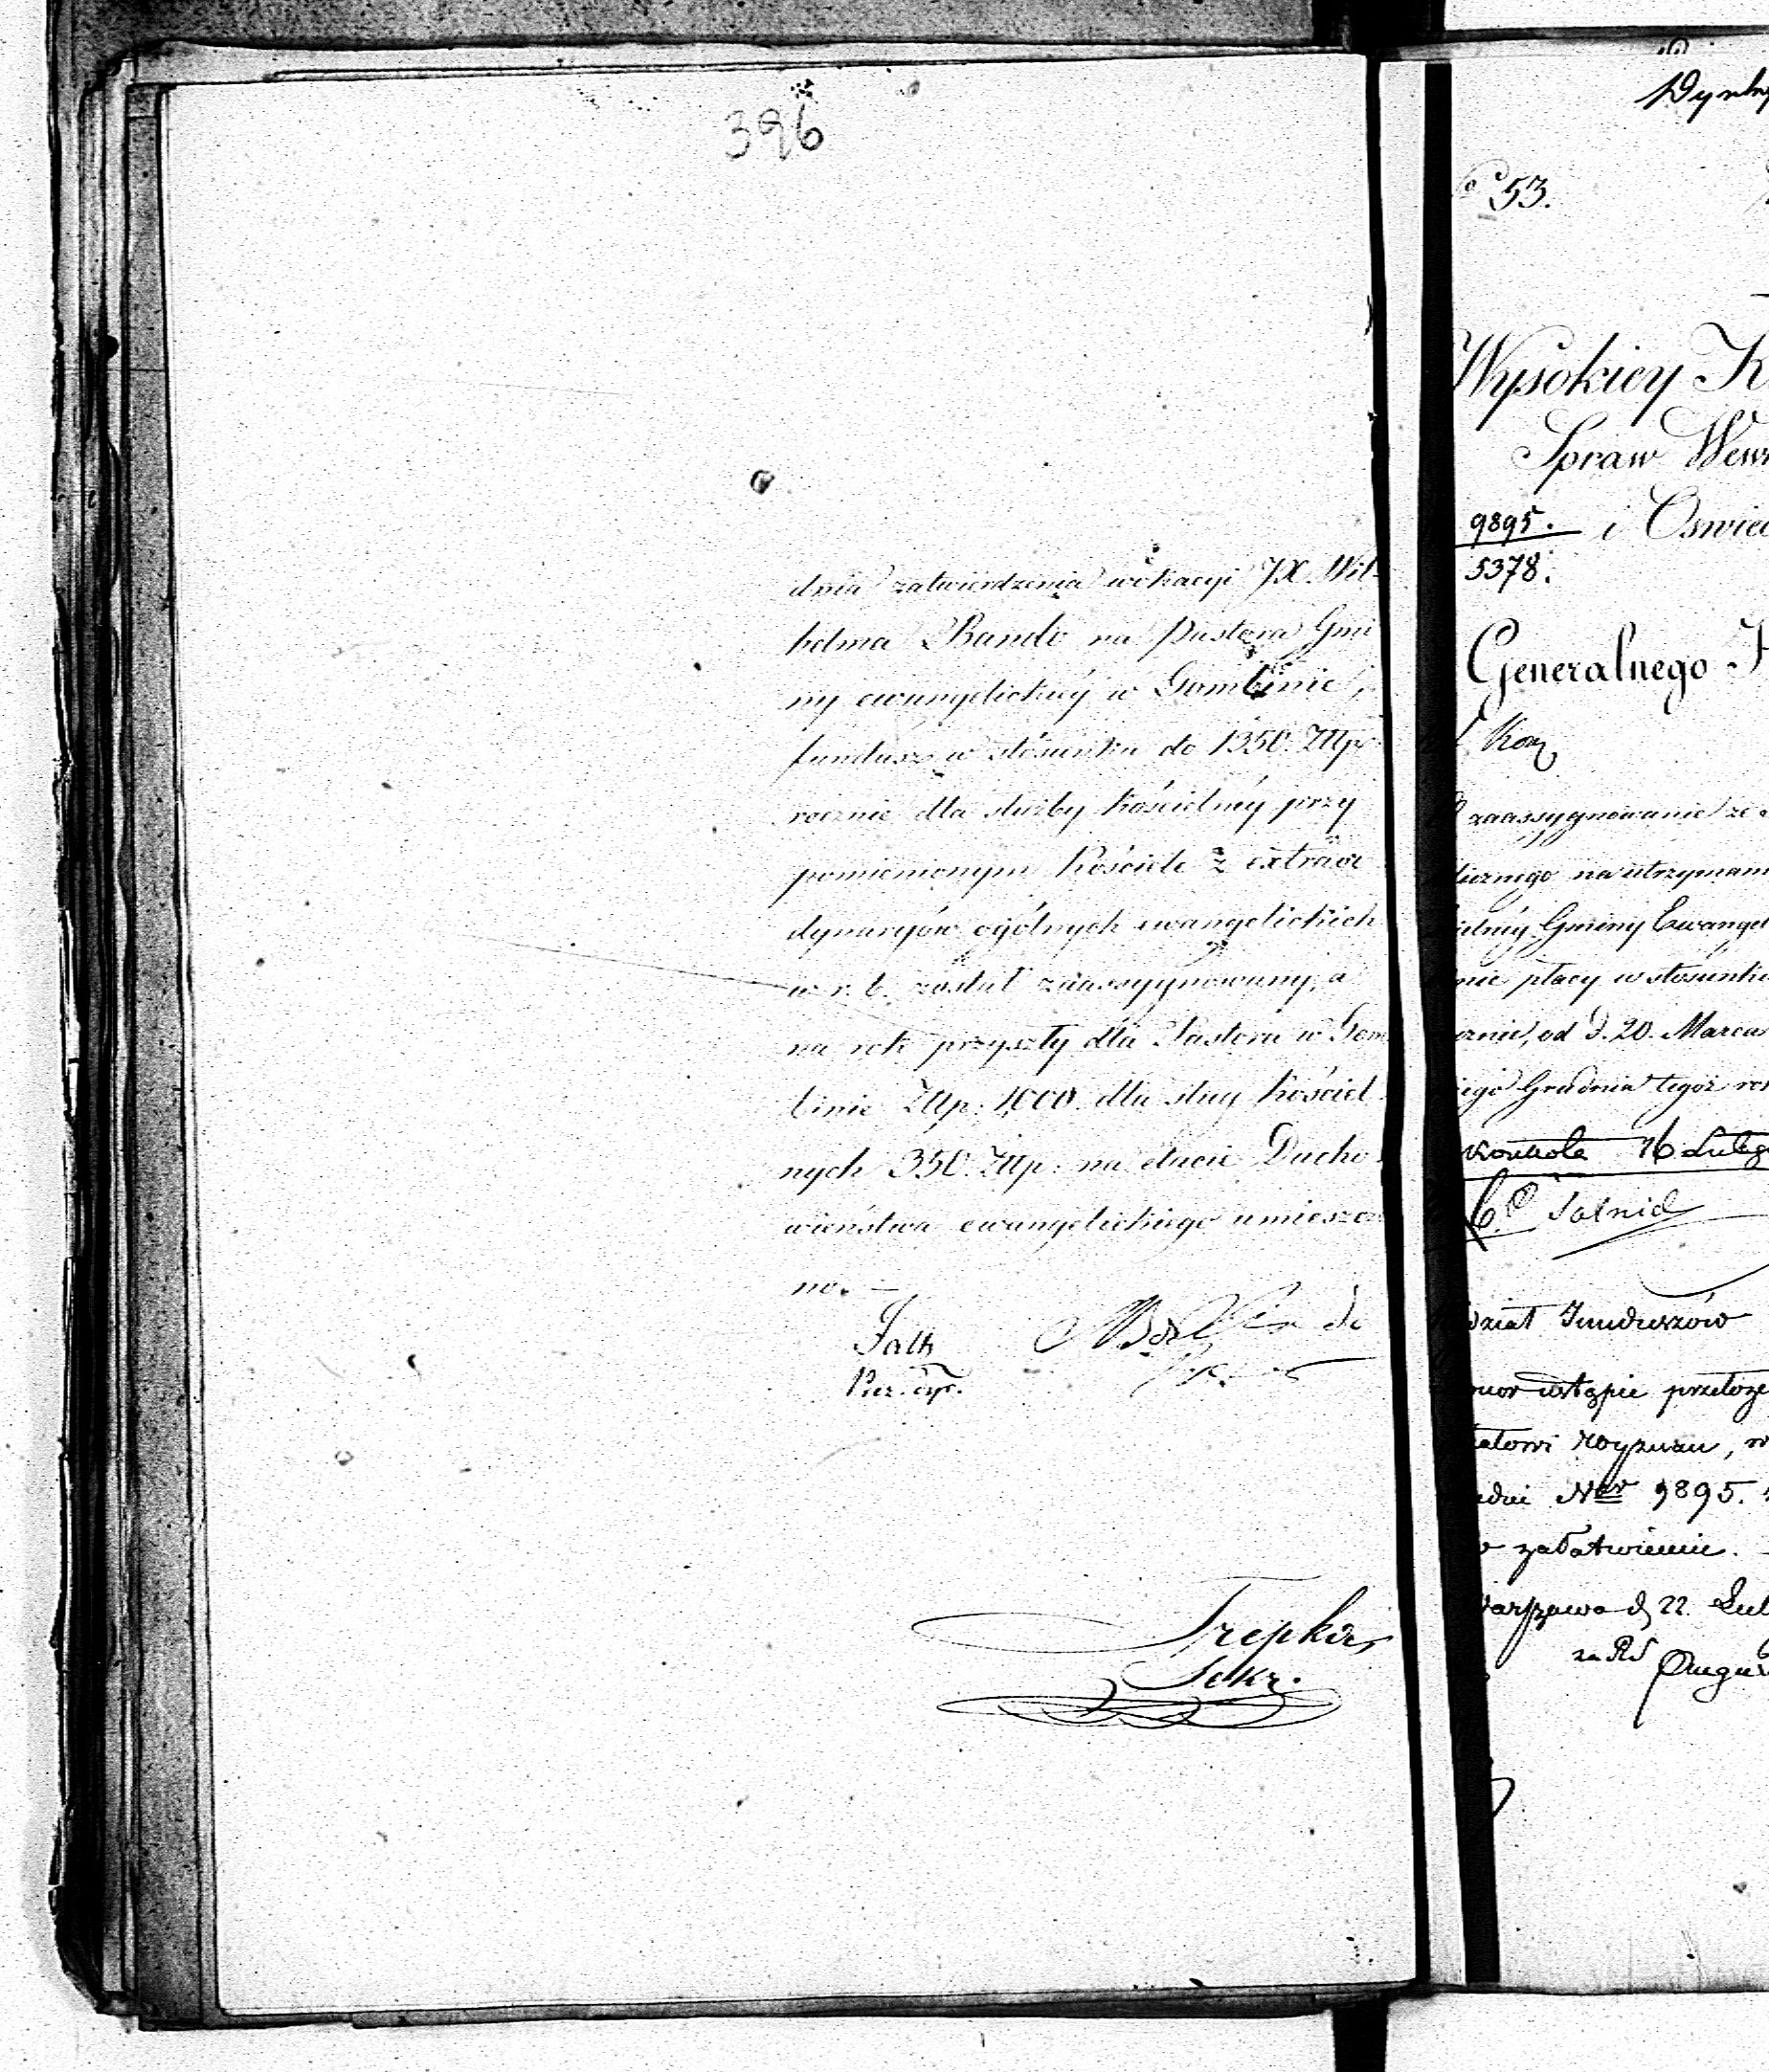 396
dnia zatwierdzenia wokacyi JX. Wil-
helma Bando na Pastora Gmi
ny ewangelickiéy w Gombinie,
fundusz w stósunku do 1350. Złlp.
rocznie dla służby kościelnéy przy
pomienionym Kościele z extraor
dynaryów ogólnych ewangelickich
w r. b. został zaassygnowany, a
na rok przyszły dla Pastora w Gom
binie Złlp. 1,000. dla sług kościel
nych 350. Złlp. na etacie Ducho
wieństwa ewangelickiego umieszczo
no. –
Trepka
Sekr.
53.
Wysokiey K
Spraw Wewn
9895. i Oswiec
5378.
Generalnego
zaassygnowanie ze
licznego na utrzymani
ielnéy Gminy Ewangel
nie płacy w stósunku
cznie, od d. 20. Marca
iego Grudnia tegoż ro
Kontrola 16 Luteg
dział Funduszów
nor ustąpie przełoże
9895.
załatwienie.
Warszawa d. 22. Lut